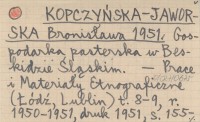 KOPCZYŃSKA-JAWOR-
SKA Bronisława 1951. Gos-
podarka pasterska w Bes-
kidzie Śląskim. — Prace
i Materiały Etnograficzne
(Łódź, Lublin) t. 8-9, r.
1950-1951, druk 1951, s. 155-